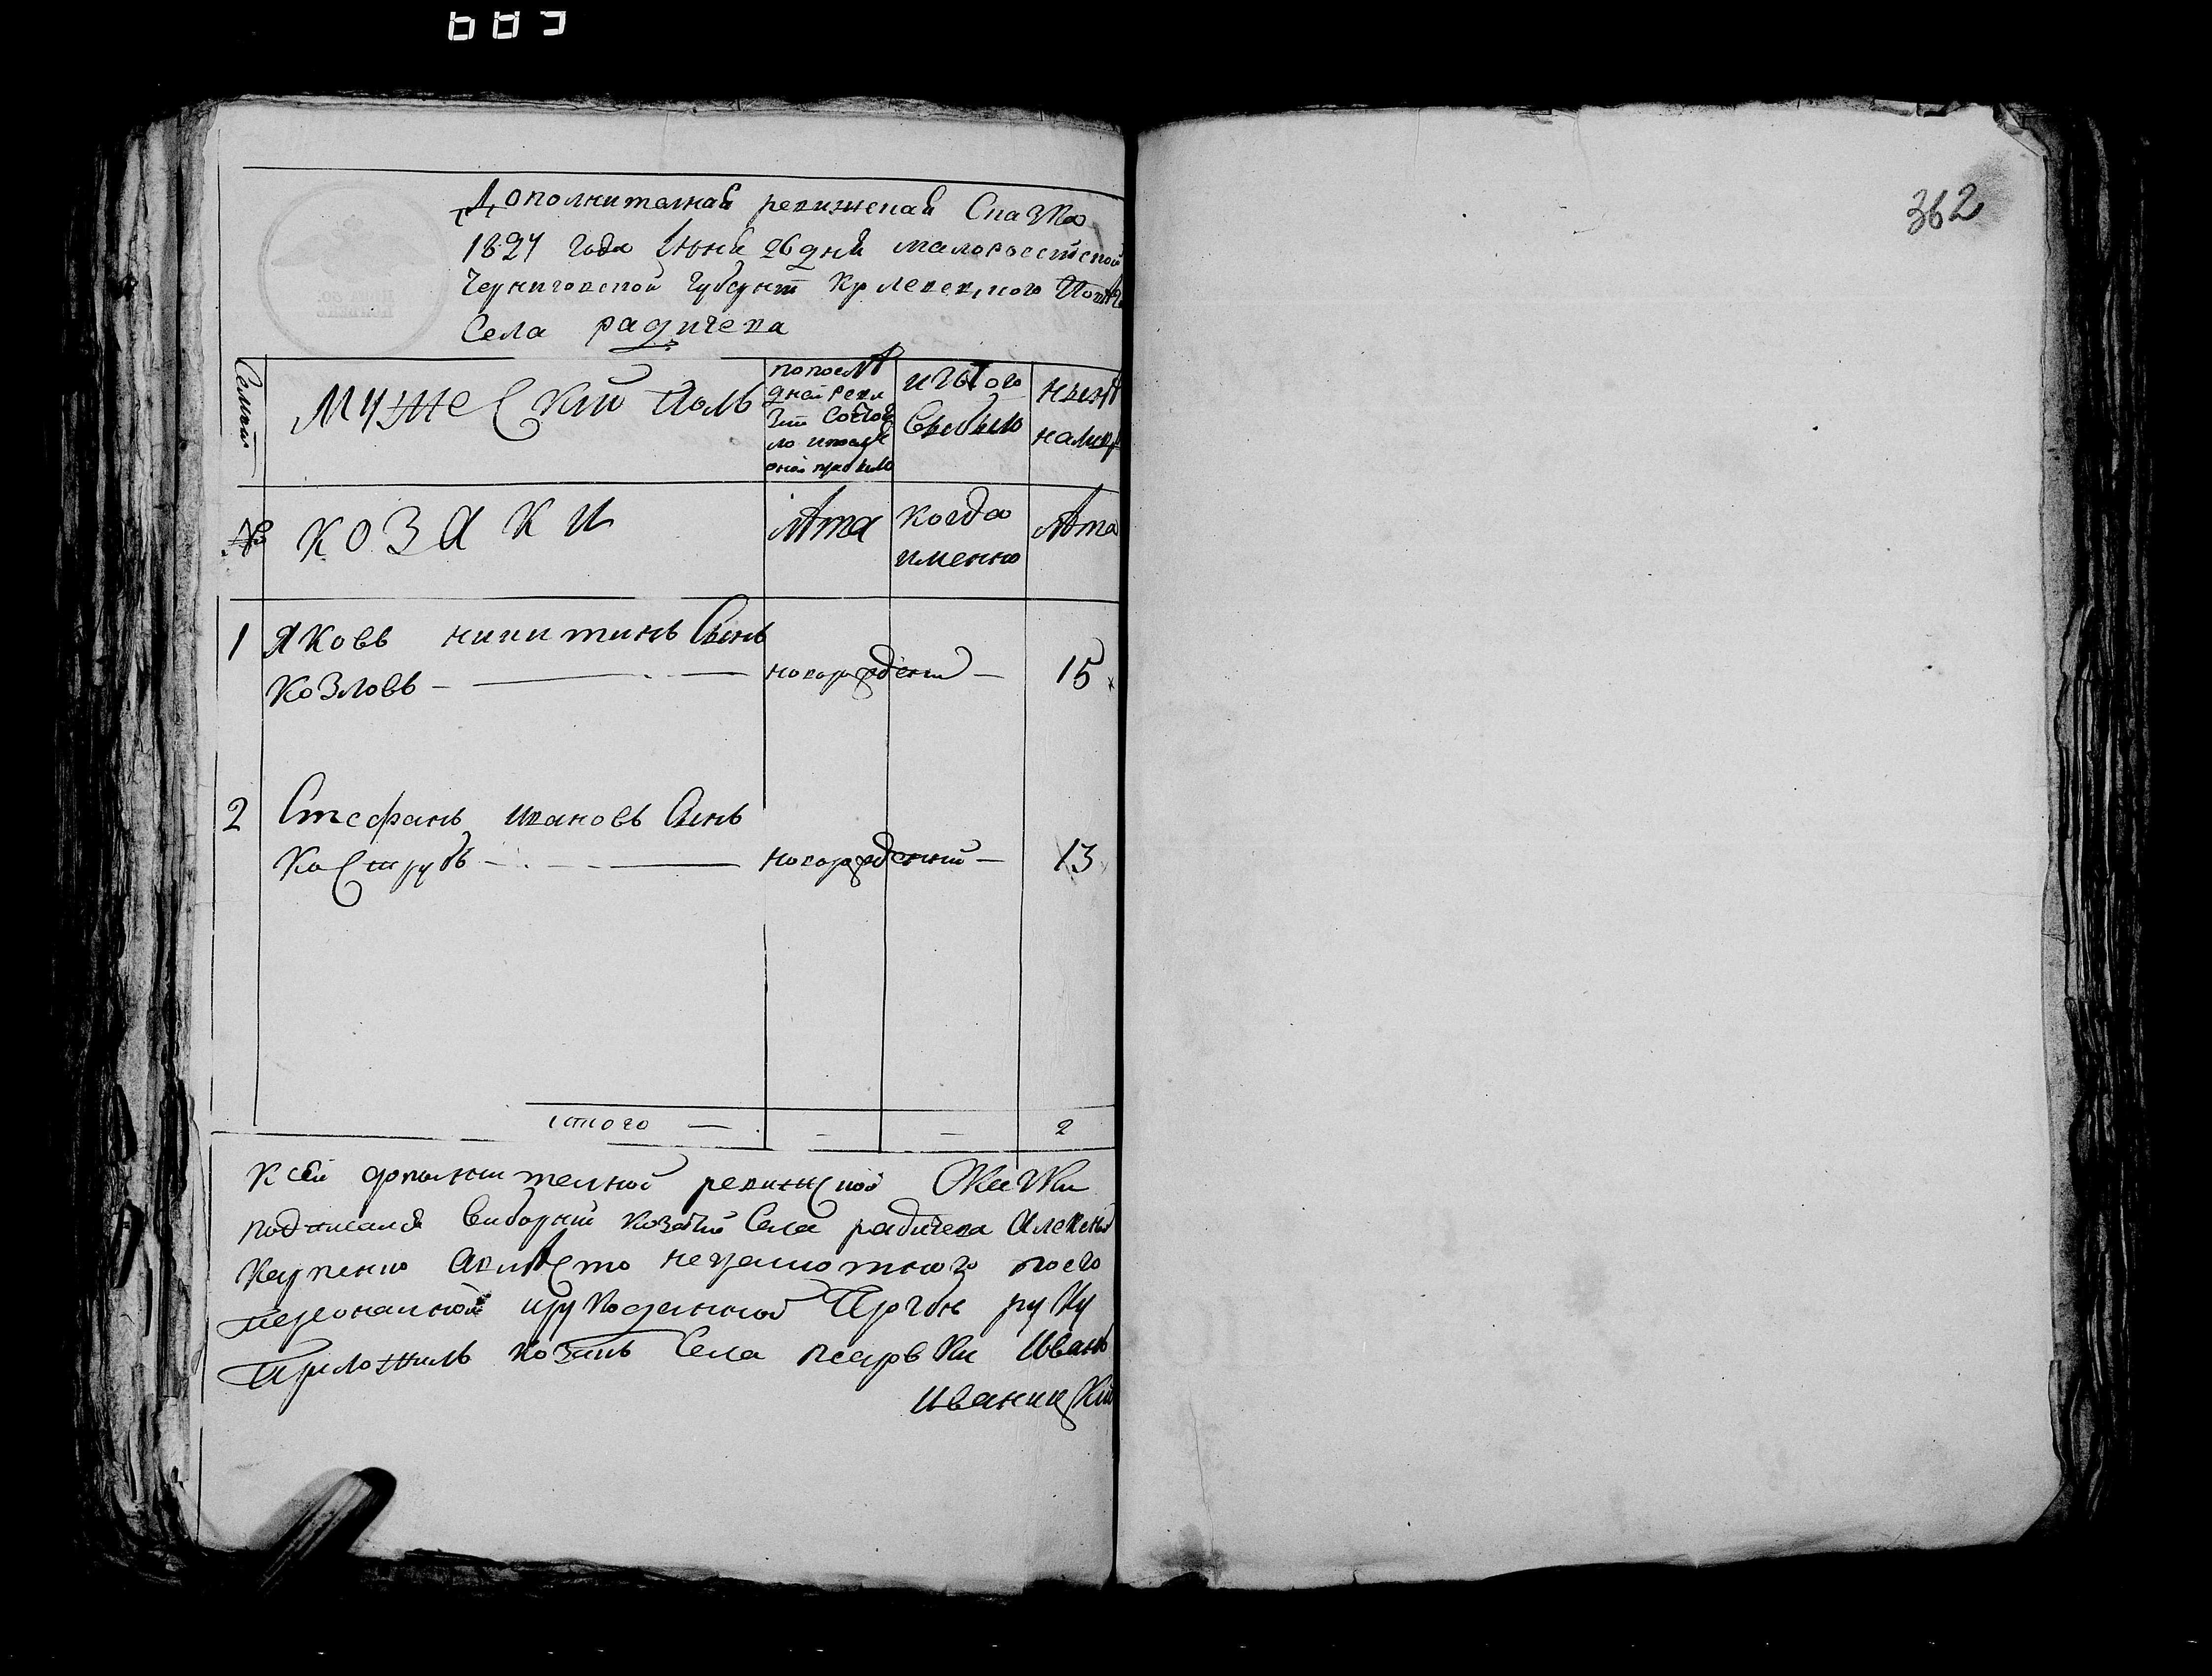 Дополнителная ревижская Сказка
1827 года июня 26 дня малороссійской
Черниговской Губерніи Кролевецкого Повѣта
Села радичева
Мужескій Полъ
по послѣ
дней реви
зіи состоя
ло и после
оной прибыло
изъ того
выбыло
нынѣ
налицо
№
козаки
лѣта
когда
именно
лѣта
1 Яковъ никитинъ Сынъ
Козловъ — новорожденій — 15
2 Стефанъ ивановъ Сынъ
Кострубъ — новорожденній — 13
итого — — — 2
К сей дополнителной ревижской Скаски
подписался виборній козачій Села радичева Алексей
а вместо неграмотного его
персоналной и рукоданной Прозбе руку
Приложилъ козакъ Села псаровки Иванъ
Иваницкій
362